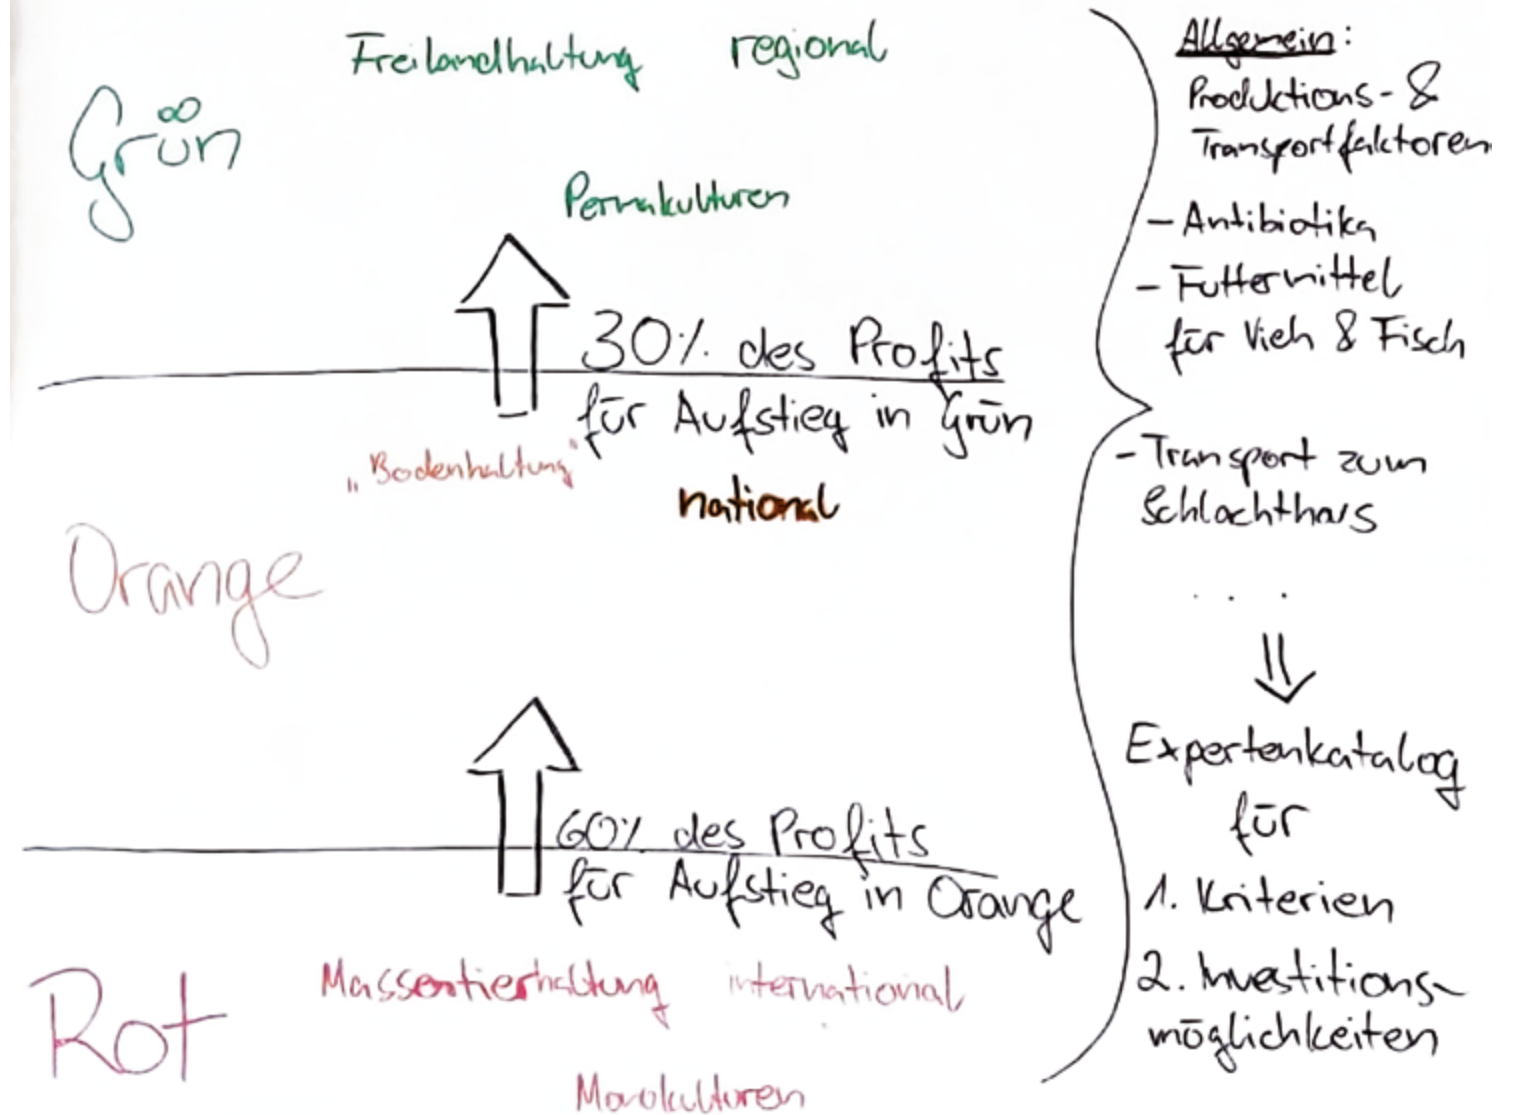 Freilandhaltung regional
Grün
Permakulturen
30% des Profits
für Aufstieg in Grün
„Bodenhaltung“
national
Orange
60% des Profits
für Aufstieg in Orange
Massentierhaltung international
Rot
Monokulturen
Allgemein:
Produktions- &
Transportfaktoren
- Antibiotika
- Futtermittel
für Vieh & Fisch
- Transport zum
Schlachthaus
. . .
⇓
Expertenkatalog
für
1. Kriterien
2. Investitions-
möglichkeiten